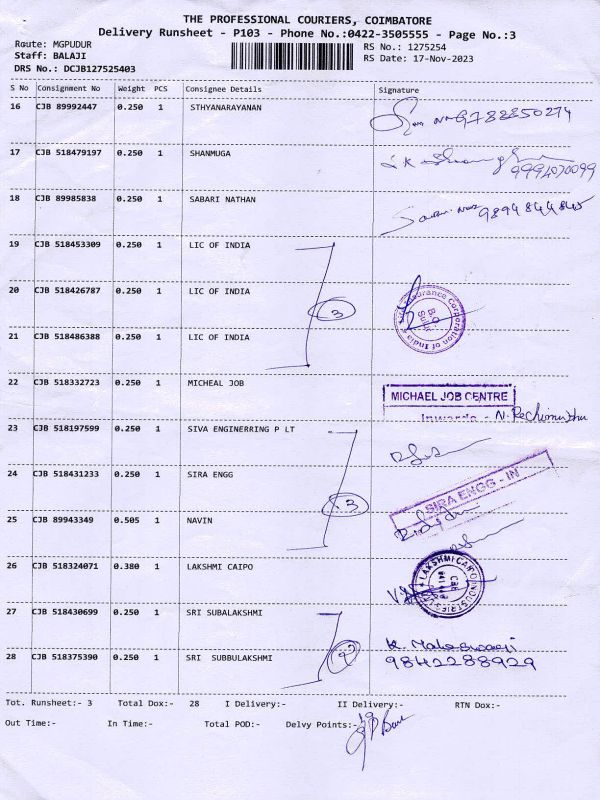 THE PROFESSIONAL COURIERS, COIMBATORE
Delivery Runsheet - P103 - Phone No.:0422-3505555 - Page No.:3
Route: MGPUDUR RS No.: 1275254
Staff: BALAJI RS Date: 17-Nov-2023
DRS No.: DCJB127525403
S No Consignment No Weight PCS Consignee Details Signature
16 CJB 89992447 0.250 1 STHYANARAYANAN
17 CJB 518479197 0.250 1 SHANMUGA
18 CJB 89985838 0.250 1 SABARI NATHAN
19 CJB 518453309 0.250 1 LIC OF INDIA
20 CJB 518426787 0.250 1 LIC OF INDIA
3
Insurance Corporation of India
21 CJB 518486388 0.250 1 LIC OF INDIA
22 CJB 518332723 0.250 1 MICHEAL JOB
MICHAEL JOB CENTRE
Inwards - N.
23 CJB 518197599 0.250 1 SIVA ENGINERRING P LT
24 CJB 518431233 0.250 1 SIRA ENGG
SIRA ENGG - IN
3
25 CJB 89943349 0.505 1 NAVIN
26 CJB 518324071 0.380 1 LAKSHMI CAIPO
LAKSHMI CAIPO INDUSTRIES
27 CJB 518430699 0.250 1 SRI SUBALAKSHMI
K. Maheswari
9842288929
28 CJB 518375390 0.250 1 SRI SUBBULAKSHMI
Tot. Runsheet:- 3 Total Dox:- 28 I Delivery:- II Delivery:- RTN Dox:-
Out Time:- In Time:- Total POD:- Delvy Points:-